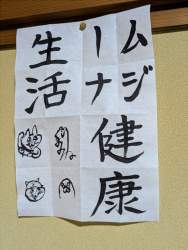 ムジ
ーナ
健康
生活